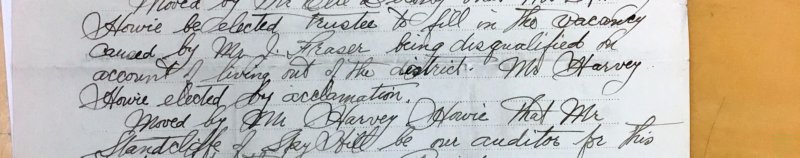 Moved by Mr
Howie be elected trustee to fill in the vacancy
caused by Mr. J. Fraser being disqualified on
account of living out of the district. Mr Harvey
Howie elected by acclamation.
Moved by Mr Harvey Howie that Mr
Standcliffe of Spy Hill be our auditor for this